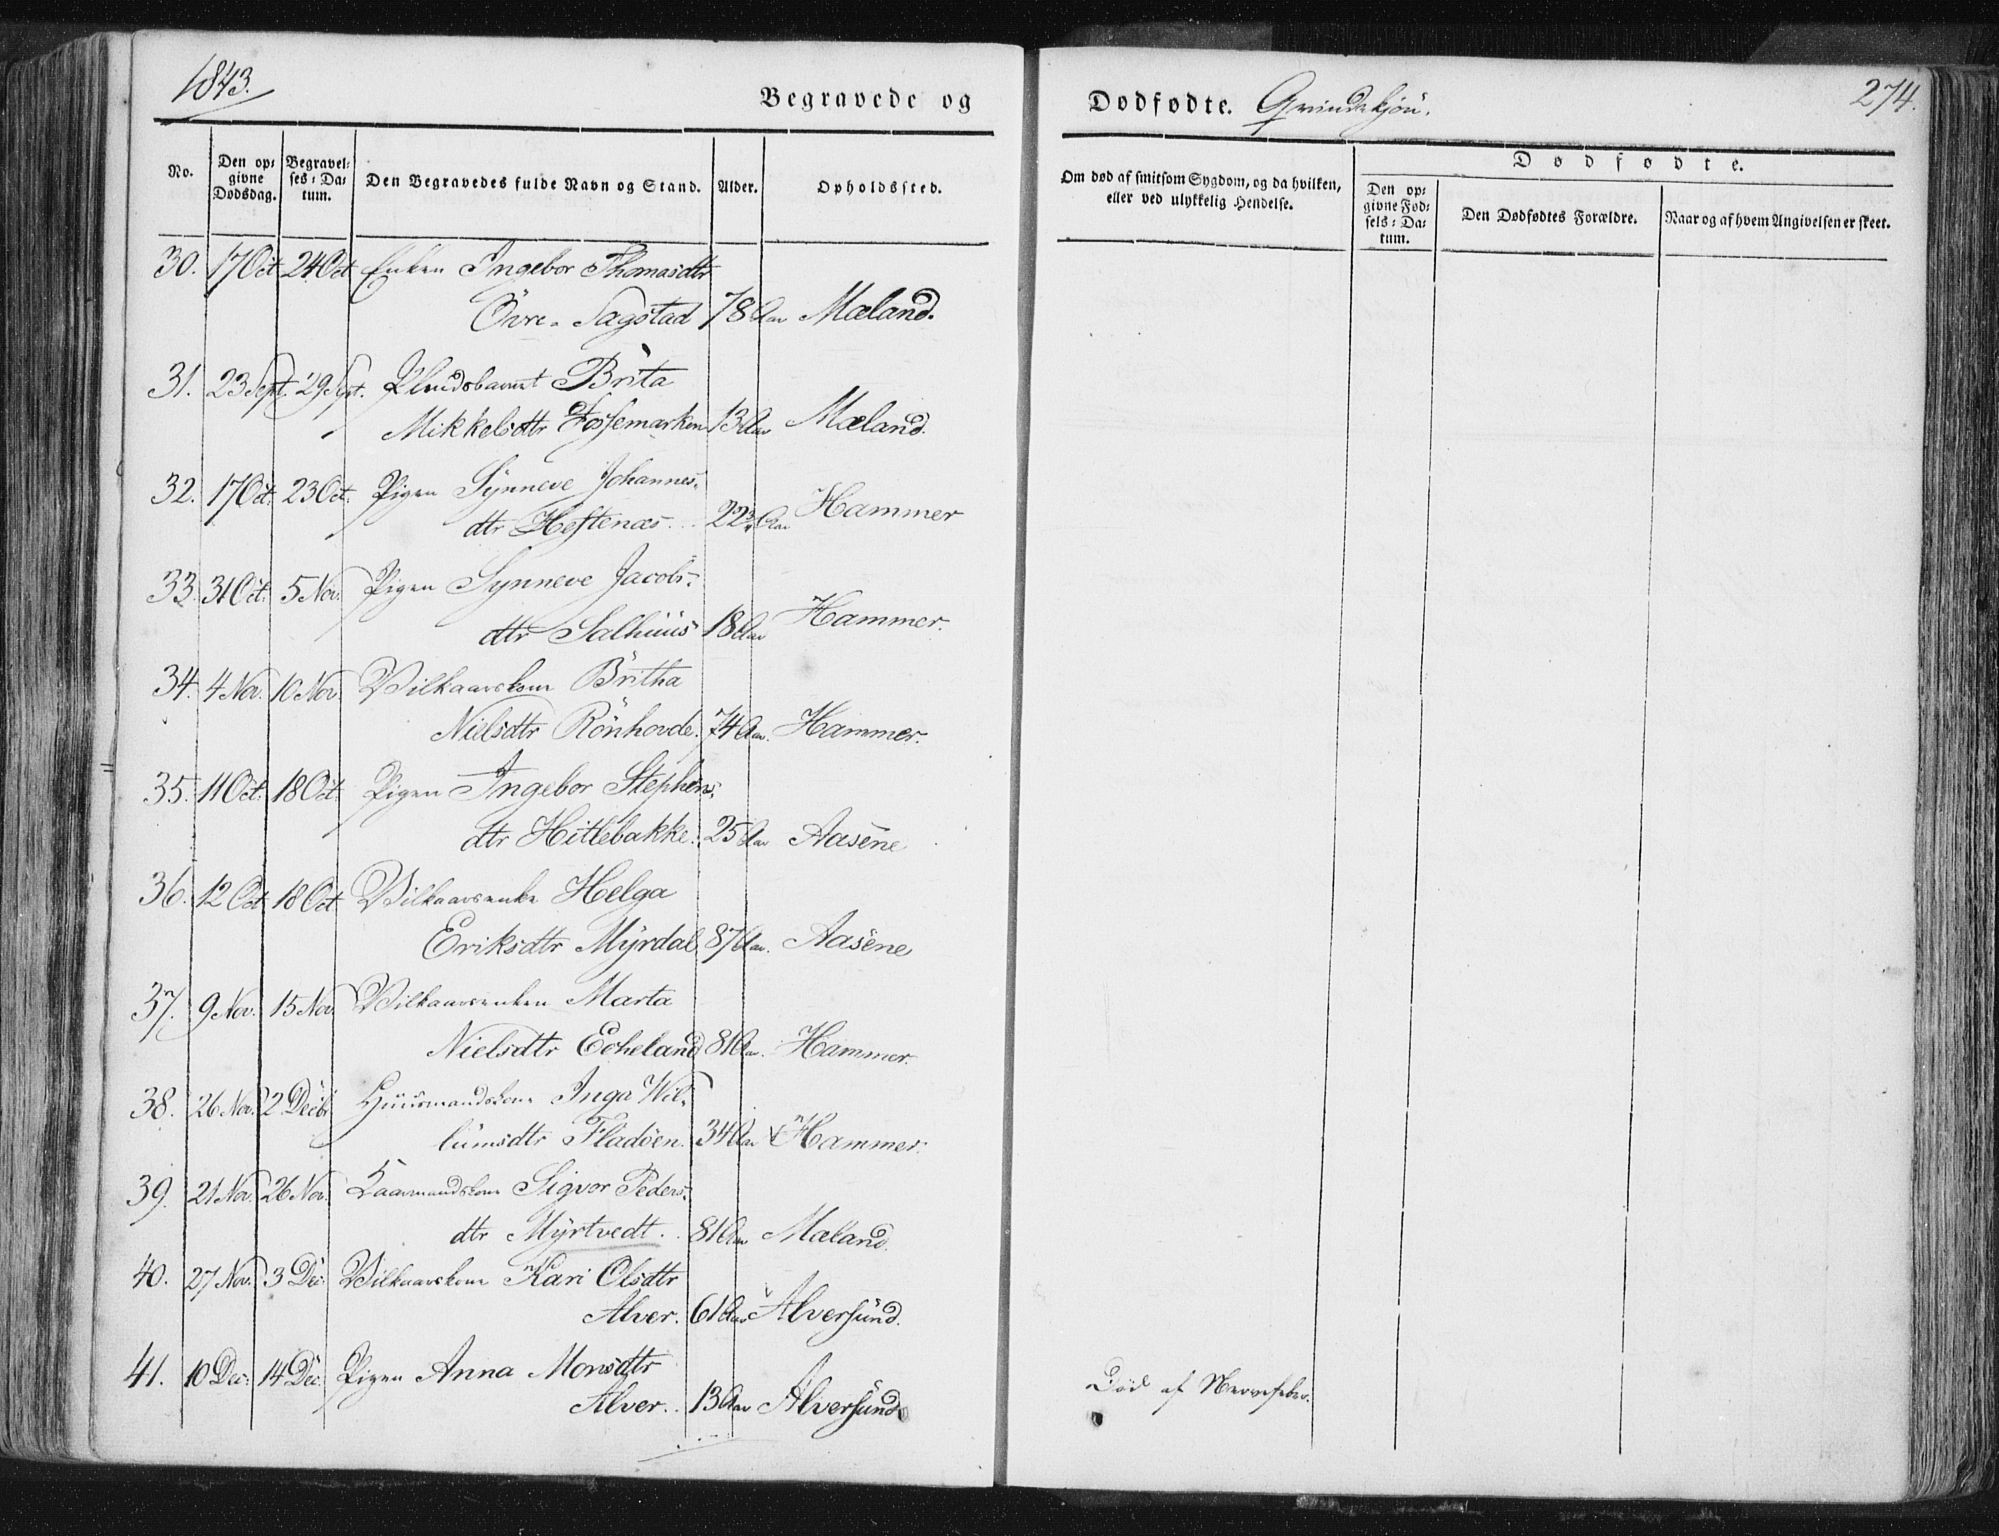 1843.
Begravede og
Dødfødte. Qvindekjön.
274.
No.
Den opgivne Dødsdag.
Begravelses-Datum.
Den Begravedes fulde Navn og Stand.
Alder.
Opholdssted.
Om død af smitsom Sygdom, og da hvilken,
eller ved ulykkelig Hendelse.
Dødfødte.
Den opgivne Fødsels-Datum.
Den Dødfødtes Forældre.
Naar og af hvem Angivelsen er skeet.
30. 17 Oct. 24 Oct. Enken Ingebor Thomasdtr
Övre-Sagstad 78 Aar Mæland.
31. 23 Sept. 29 Sept. Brita
Mikkelsdtr Fossemarken 13 Aar Mæland.
32. 17 Oct. 23 Oct. Pigen Synneve Johannes-
dtr Hestenæs 22 Aar Hammer
33. 31 Oct. 5 Nov. Pigen Synneve Jacobs-
dtr Salhuus 18 Aar Hammer.
34. 4 Nov. 10 Nov. Vilkaarskone Britha
Nielsdtr Rönhovde. 74 Aar. Hammer.
35. 11 Oct. 18 Oct. Pigen Ingebor Stephens-
dtr Hitlebakke. 25 Aar Aasene
36. 12 Oct. 18 Oct. Vilkaarsenke Helga
Eriksdtr Myrdal. 87 Aar. Aasene
37. 9 Nov. 15 Nov. Vilkaarsenken Marta
Nielsdtr Echeland 81 Aar. Hammer.
38. 26 Nov. 2 Decbr Huusmandskone Inga Wil-
lumsdtr Fladöen. 34 Aar Hammer.
39. 21 Nov. 26 Nov. Kaarmandskone Sigvor Peders-
dtr Myrtvedt. 81 Aar Mæland.
40. 27 Nov. 3 Dec. Vilkaarskone Kari Olsdtr
Alver. 61 Aar Alversund.
41. 10 Dec. 14 Dec. Pigen Anna Monsdtr
Alver. 13 Aar Alversund.
Död af Nervefeber.